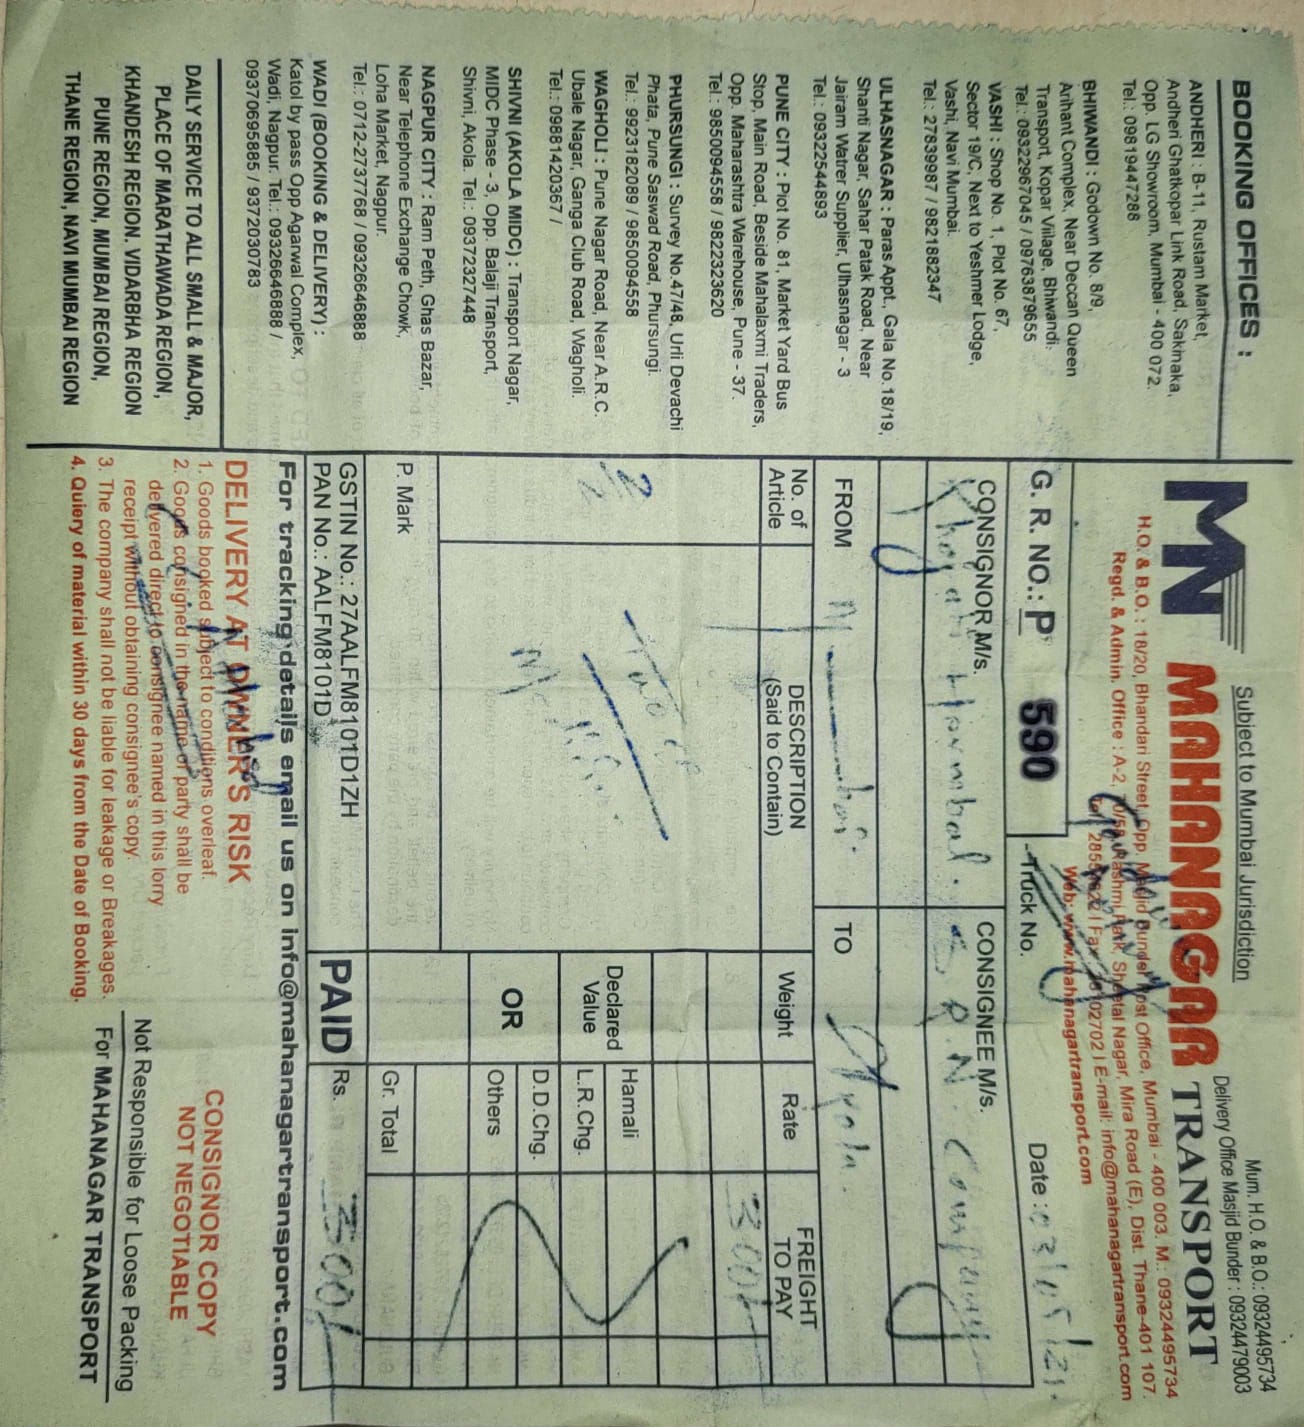 Subject to Mumbai Jurisdiction
Mum. H.O. & B.O.: 09324495734
Delivery Office Masjid Bunder : 09324479003
MAHANAGAR TRANSPORT
H.O. & B.O. : 18/20, Bhandari Street, Opp. Masjid Bunder Post Office, Mumbai - 400 003. M.: 09324495734
Regd. & Admin. Office : A-2, Rashmi Park, Sheetal Nagar, Mira Road (E), Dist. Thane-401 107.
I Fax : I E-mail: info@mahanagartransport.com
Web: www.mahanagartransport.com
G. R. NO.: P 590
Truck No.
Date :
CONSIGNOR M/s.
CONSIGNEE M/s.
P. N. Company
FROM Mumbai
TO Akola.
No. of Article
DESCRIPTION (Said to Contain)
Weight
Rate
FREIGHT TO PAY
300/-
2
Two
Declared Value
Hamali
L.R.Chg.
OR
D.D.Chg.
Others
P. Mark
Gr. Total
GSTIN No.: 27AALFM8101D1ZH
PAN No.: AALFM8101D
PAID
Rs. 300/-
For tracking details email us on info@mahanagartransport.com
DELIVERY AT OWNER'S RISK
1. Goods booked subject to conditions overleaf.
2. Goods consigned in the name of party shall be
delivered direct to consignee named in this lorry
receipt without obtaining consignee's copy.
3. The company shall not be liable for leakage or Breakages.
4. Quiery of material within 30 days from the Date of Booking.
CONSIGNOR COPY
NOT NEGOTIABLE
Not Responsible for Loose Packing
For MAHANAGAR TRANSPORT
BOOKING OFFICES :
ANDHERI : B-11, Rustam Market,
Andheri Ghatkopar Link Road, Sakinaka,
Opp. LG Showroom, Mumbai - 400 072.
Tel.: 09819447288
BHIWANDI : Godown No. 8/9,
Arihant Complex, Near Deccan Queen
Transport, Kopar Village, Bhiwandi.
Tel.: 09322967045 / 09763879655
VASHI : Shop No. 1, Plot No. 67,
Sector 19/C, Next to Yeshmer Lodge,
Vashi, Navi Mumbai.
Tel.: 27839987 / 9821882347
ULHASNAGAR : Paras Appt., Gala No.18/19,
Shanti Nagar, Sahar Patak Road, Near
Jairam Watrer Supplier, Ulhasnagar - 3
Tel.: 09322544893
PUNE CITY : Plot No. 81, Market Yard Bus
Stop, Main Road, Beside Mahalaxmi Traders,
Opp. Maharashtra Warehouse, Pune - 37.
Tel.: 9850094558 / 9822323620
PHURSUNGI : Survey No.47/48, Urli Devachi
Phata, Pune Saswad Road, Phursungi.
Tel.: 9923182089 / 9850094558
WAGHOLI : Pune Nagar Road, Near A.R.C.
Ubale Nagar, Ganga Club Road, Wagholi.
Tel.:09881420367 /
SHIVNI (AKOLA MIDC) : Transport Nagar,
MIDC Phase - 3, Opp. Balaji Transport,
Shivni, Akola. Tel.: 09372327448
NAGPUR CITY : Ram Peth, Ghas Bazar,
Near Telephone Exchange Chowk,
Loha Market, Nagpur.
Tel.: 0712-2737768 / 09326646888
WADI (BOOKING & DELIVERY) :
Katol by pass Opp Agarwal Complex,
Wadi, Nagpur. Tel.: 09326646888 /
09370695885 / 9372030783
DAILY SERVICE TO ALL SMALL & MAJOR,
PLACE OF MARATHAWADA REGION,
KHANDESH REGION. VIDARBHA REGION
PUNE REGION, MUMBAI REGION,
THANE REGION, NAVI MUMBAI REGION